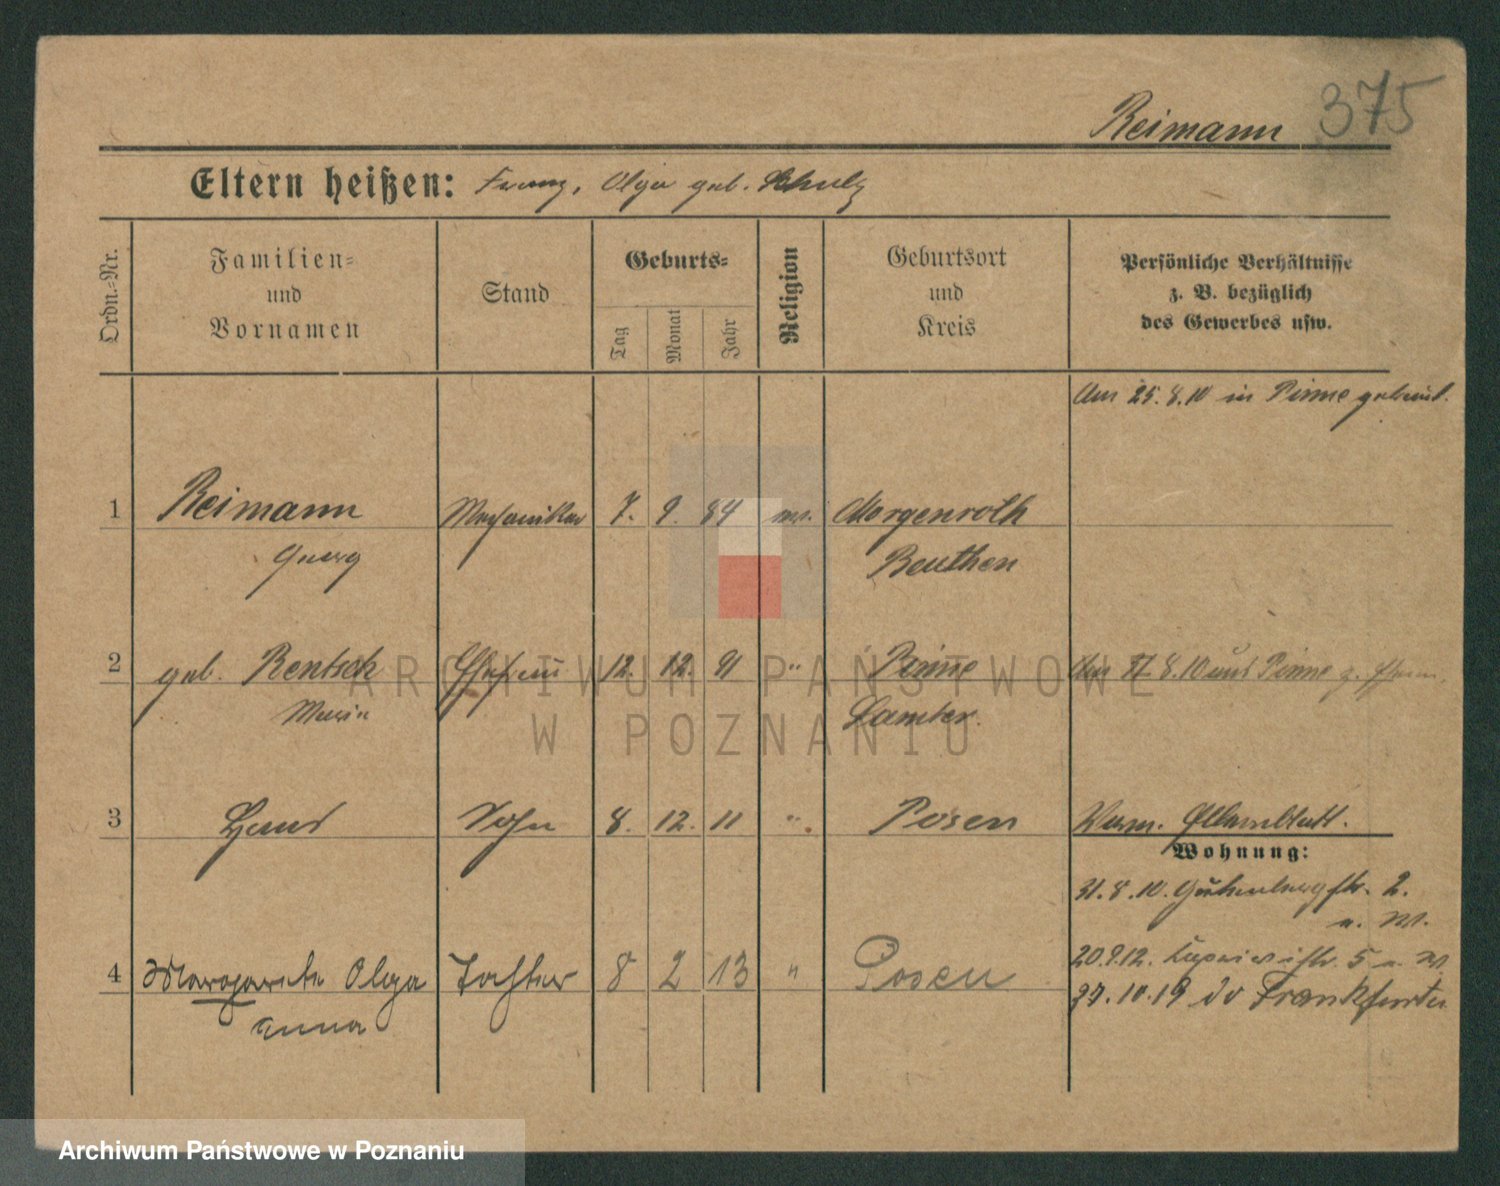 Reimann 375
Eltern heißen: Franz, Olga geb. Schulz
Ordn.-Nr.
Familien-
und
Vornamen
Stand
Geburts-
Tag
Monat
Jahr
Religion
Geburtsort
und
Kreis
Persönliche Verhältnisse
z. B. bezüglich
des Gewerbes usw.
Am 25.8.10 in Pinne geheirat.
1 Reimann Mechaniker 7. 9. 84 Morgenroth
Georg Beuthen
2 geb. Rentsch Ehefrau 12. 12. 91 " Pinne 8.10 Pinne z.
Maria Samter.
3 Hans Sohn 8. 12. 11 " Posen
Wohnung:
31.8.10. Gutenbergstr. 2.
4 Margarete Olga Tochter 8 2 13 " Posen
20.9.12. 5
Anna
27.10.19 Frankfurt
ARCHIWUM PAŃSTWOWE
W POZNANIU
Archiwum Państwowe w Poznaniu